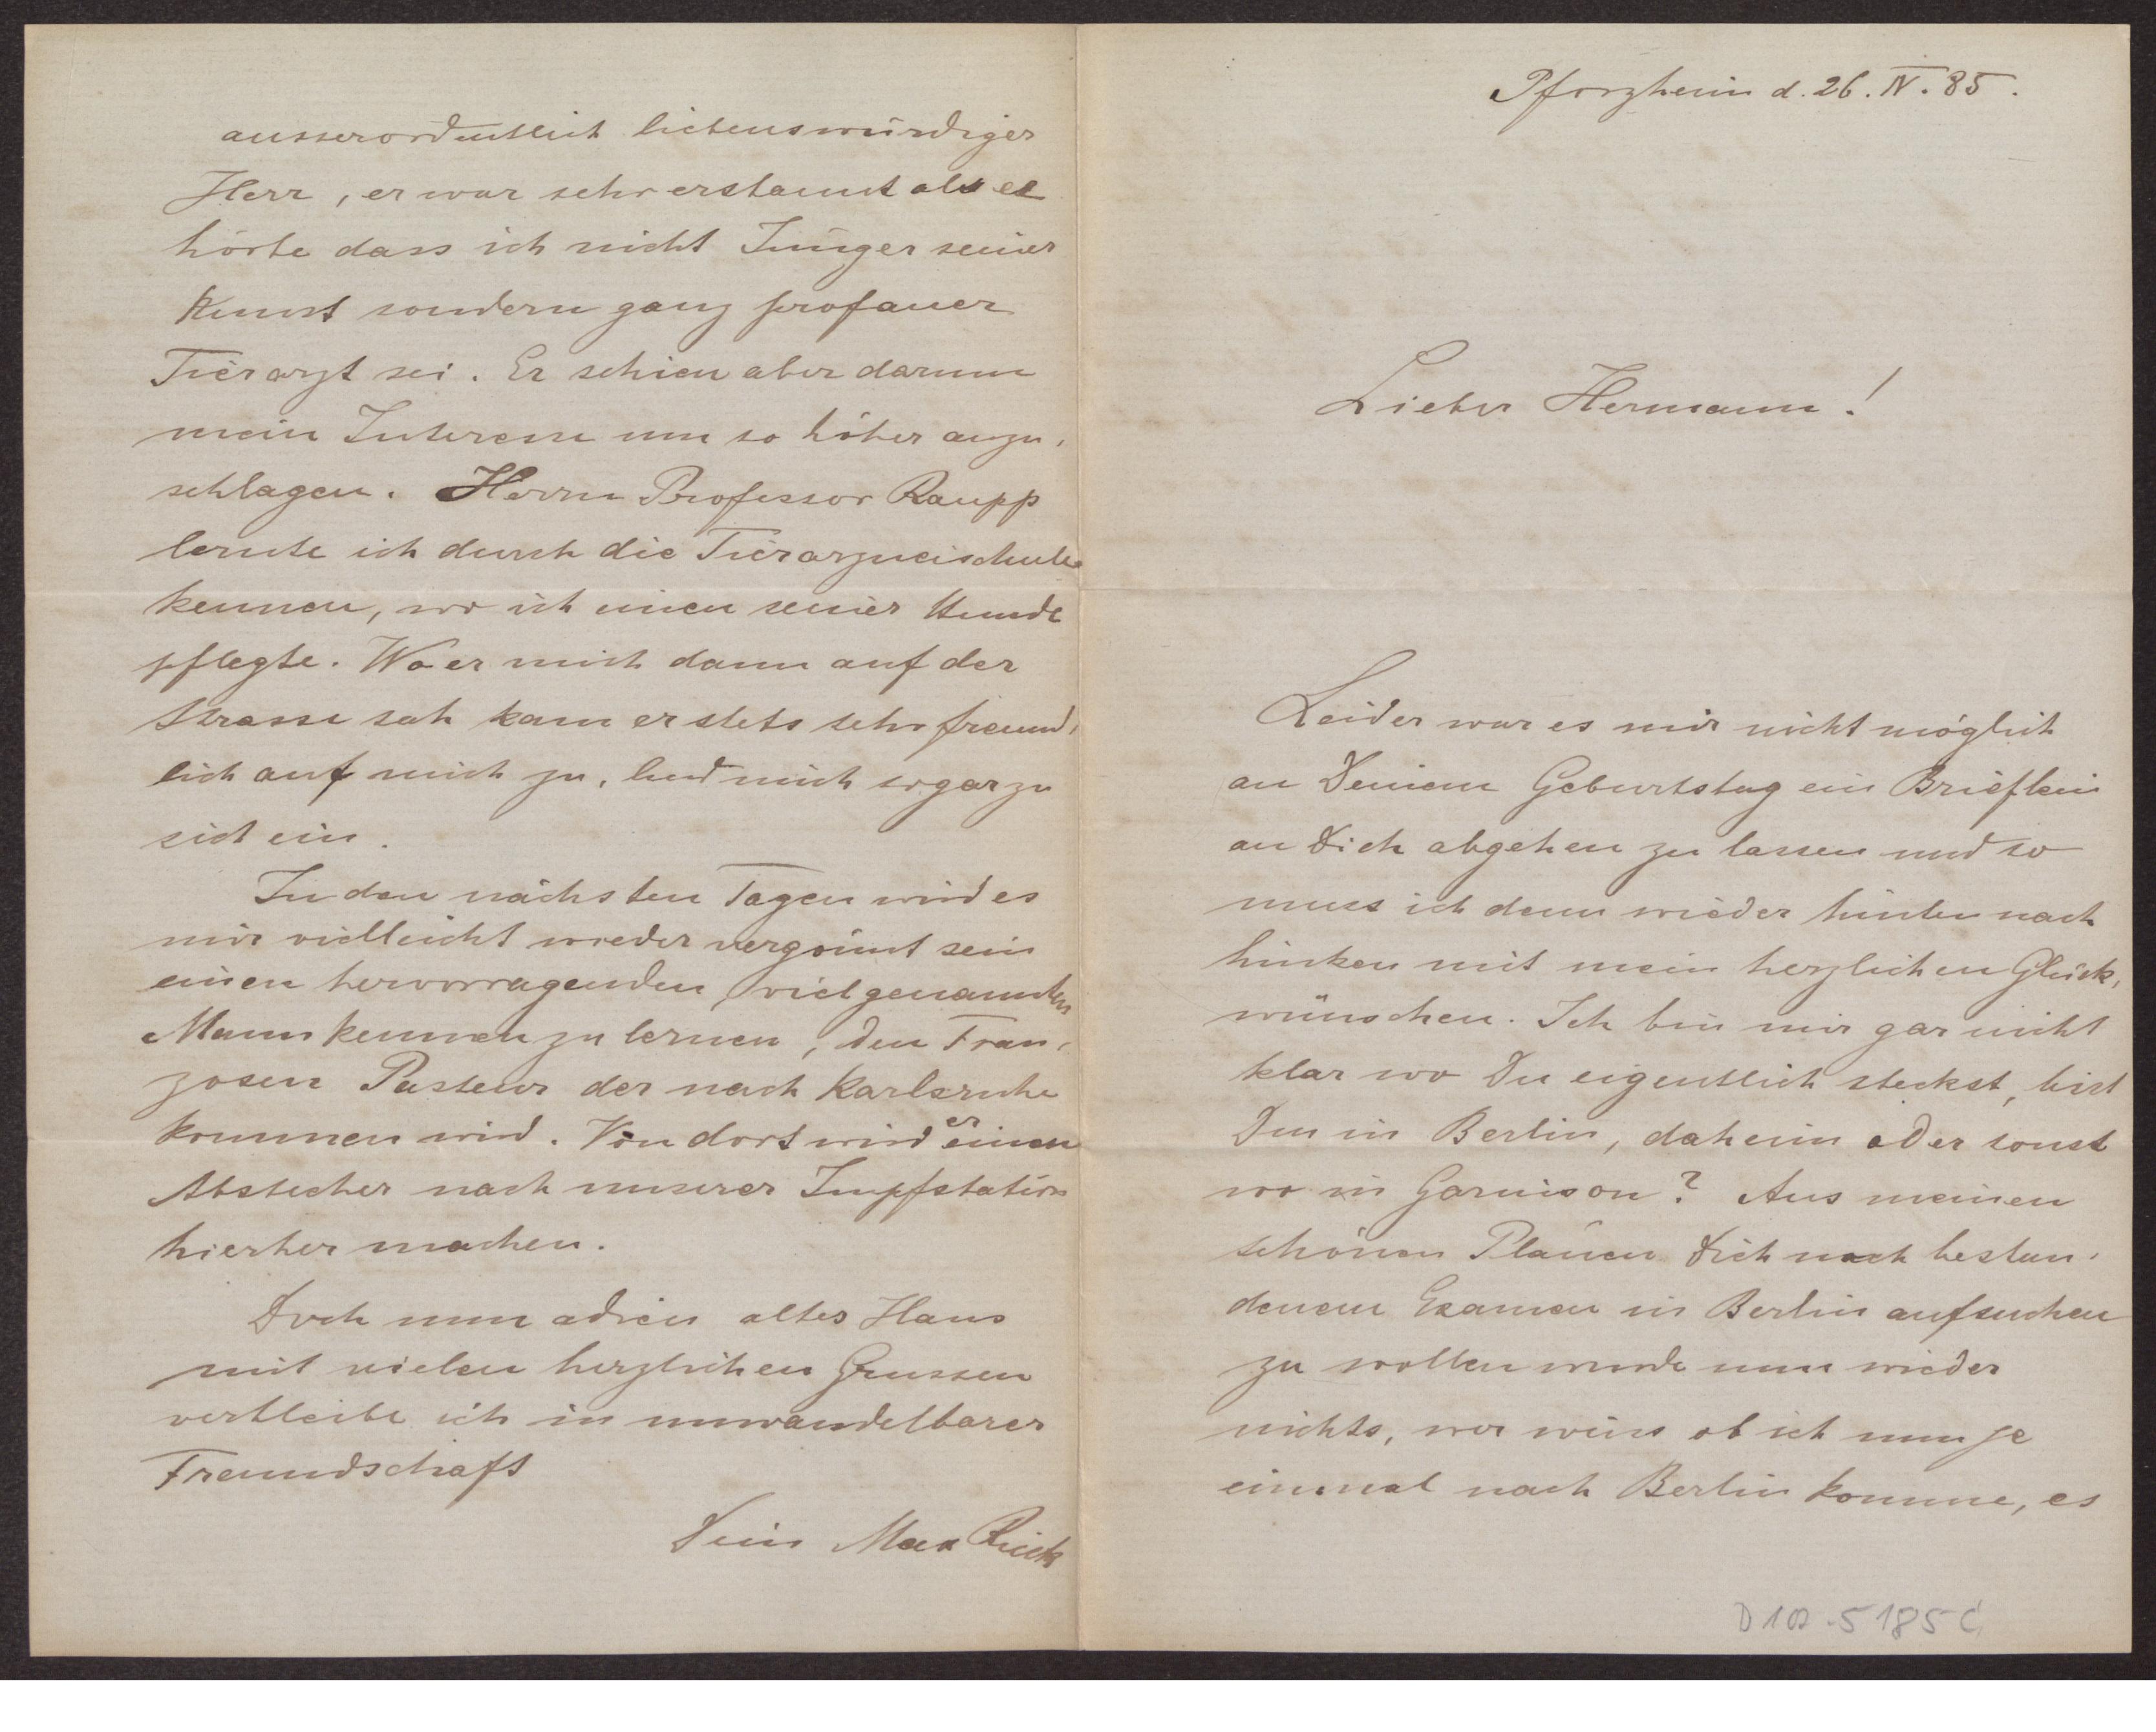 Pforzheim d. 26. IV. 85.
Lieber Hermann!
Leider war es mir nicht möglich
an Deinem Geburtstag ein Brieflein
an Dich abgehen zu lassen und so
muss ich denn wieder hinten nach
hinken mit mein herzlichen Glück,
wünschen. Ich bin mir gar nicht
klar wo Du eigentlich steckst, bist
Du in Berlin, daheim oder sonst
wo in Garnison? Aus meinen
schönen Plänen Dich nach bestan,
denem Examen in Berlin aufsuchen
zu wollen wurde nun wieder
nichts, wer weiss ob ich nun je
einmal nach Berlin komme, es
D 100.5185 C
ausserordentlich liebenswürdiger
Herr, er war sehr erstaunt als er
hörte dass ich nicht Jünger seiner
Kunst sondern ganz profaner
Tierarzt sei. Er schien aber darum
mein Interesse um so höher anzu,
schlagen. Herrn Professor Raupp
lernte ich durch die Tierarzneischule
kennen, wo ich einen seiner Hunde
pflegte. Wo er mich dann auf der
Strasse sah kam er stets sehr freund,
lich auf mich zu, lud mich sogar zu
sich ein.
In den nächsten Tagen wird es
mir vielleicht wieder vergönnt sein
einen hervorragenden, vielgenannten
Mann kennen zu lernen, den Fran,
zosen Pasteur der nach Karlsruhe
kommen wird. Von dort wird er einen
Abstecher nach unserer Impfstation
hierher machen.
Doch nun adieu altes Haus
mit vielen herzlichen Grussen
verbleibe ich in unwandelbarer
Freundschaft
Dein Max